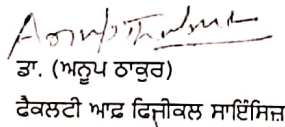 ਡਾ. (ਅਨੂਪ ਠਾਕੁਰ)
ਫੈਕਲਟੀ ਆਫ਼ ਫਿਜ਼ੀਕਲ ਸਾਇੰਸਿਜ਼